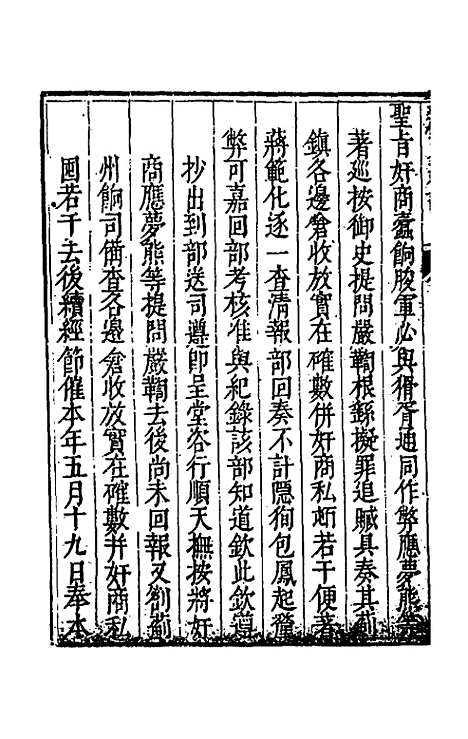 聖旨奸商蠹餉朘軍必與猾胥通同作弊應夢熊等
著巡按御史提問嚴鞫根繇擬罪追贓具奏其薊
鎮各邊倉收放實在確數併奸商私囤若干便著
蔣範化逐一查清報部回奏不許隱狥包鳳起釐
弊可嘉回部考核准與紀錄該部知道欽此欽遵
抄出到部送司遵即呈堂咨行順天撫按將奸
商應夢熊等提問嚴鞫去後尚未回報又劄薊
州餉司備查各邊倉收放實在確數并奸商私
囤若干去後續經節催本年五月十九日奉本